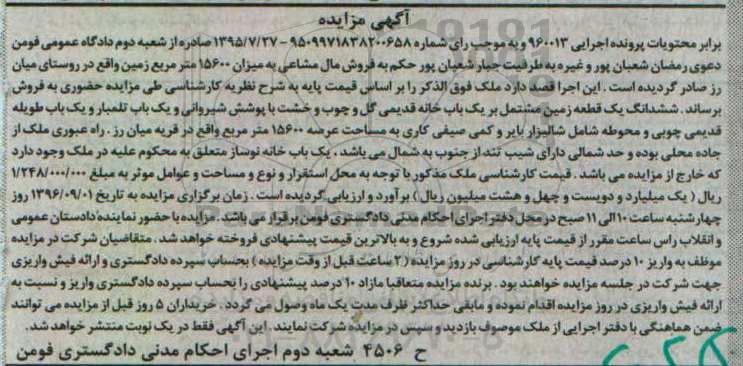 آگهی مزایده
برابر محتویات پرونده اجرایی ۹۶۰۰۱۳ و به موجب رای شماره ۹۵۰۹۹۷۱۸۳۸۲۰۰۶۵۸ - ۱۳۹۵/۷/۲۷ صادره از شعبه دوم دادگاه عمومی فومن
دعوی رمضان شعبان پور و غیره به طرفیت جبار شعبان پور حکم به فروش مال مشاعی به میزان ۱۵۶۰۰ متر مربع زمین واقع در روستای میان
رز صادر گردیده است . این اجرا قصد دارد ملک فوق الذکر را بر اساس قیمت پایه به شرح نظریه کارشناسی طی مزایده حضوری به فروش
برساند . ششدانگ یک قطعه زمین مشتمل بر یک باب خانه قدیمی گل و چوب و خشت با پوشش شیروانی و یک باب تلمبار و یک باب طویله
قدیمی چوبی و محوطه شامل شالیزار بایر و کمی صیفی کاری به مساحت عرصه ۱۵۶۰۰ متر مربع واقع در قریه میان رز . راه عبوری ملک از
جاده محلی بوده و حد شمالی دارای شیب تند از جنوب به شمال می باشد ، یک باب خانه نوساز متعلق به محکوم علیه در ملک وجود دارد
که خارج از مزایده می باشد . قیمت کارشناسی ملک مذکور با توجه به محل استقرار و نوع و مساحت و عوامل موثر به مبلغ ۱/۲۴۸/۰۰۰/۰۰۰
ریال ( یک میلیارد و دویست و چهل و هشت میلیون ریال ) برآورد و ارزیابی گردیده است . زمان برگزاری مزایده به تاریخ ۱۳۹۶/۰۹/۰۱ روز
چهارشنبه ساعت ۱۰ الی ۱۱ صبح در محل دفتر اجرای احکام مدنی دادگستری فومن برقرار می باشد . مزایده با حضور نماینده دادستان عمومی
و انقلاب راس ساعت مقرر از قیمت پایه ارزیابی شده شروع و به بالاترین قیمت پیشنهادی فروخته خواهد شد . متقاضیان شرکت در مزایده
موظف به واریز ۱۰ درصد قیمت پایه کارشناسی در روز مزایده ( ۲ ساعت قبل از وقت مزایده ) بحساب سپرده دادگستری و ارائه فیش واریزی
جهت شرکت در جلسه مزایده خواهند بود . برنده مزایده متعاقبا مازاد ۱۰ درصد پیشنهادی را بحساب سپرده دادگستری واریز و نسبت به
ارائه فیش واریزی در روز مزایده اقدام نموده و مابقی حداکثر ظرف مدت یک ماه وصول می گردد . خریداران ۵ روز قبل از مزایده می توانند
ضمن هماهنگی با دفتر اجرایی از ملک موصوف بازدید و سپس در مزایده شرکت نمایند . این آگهی فقط در یک نوبت منتشر خواهد شد .
ح ۴۵۰۶ شعبه دوم اجرای احکام مدنی دادگستری فومن